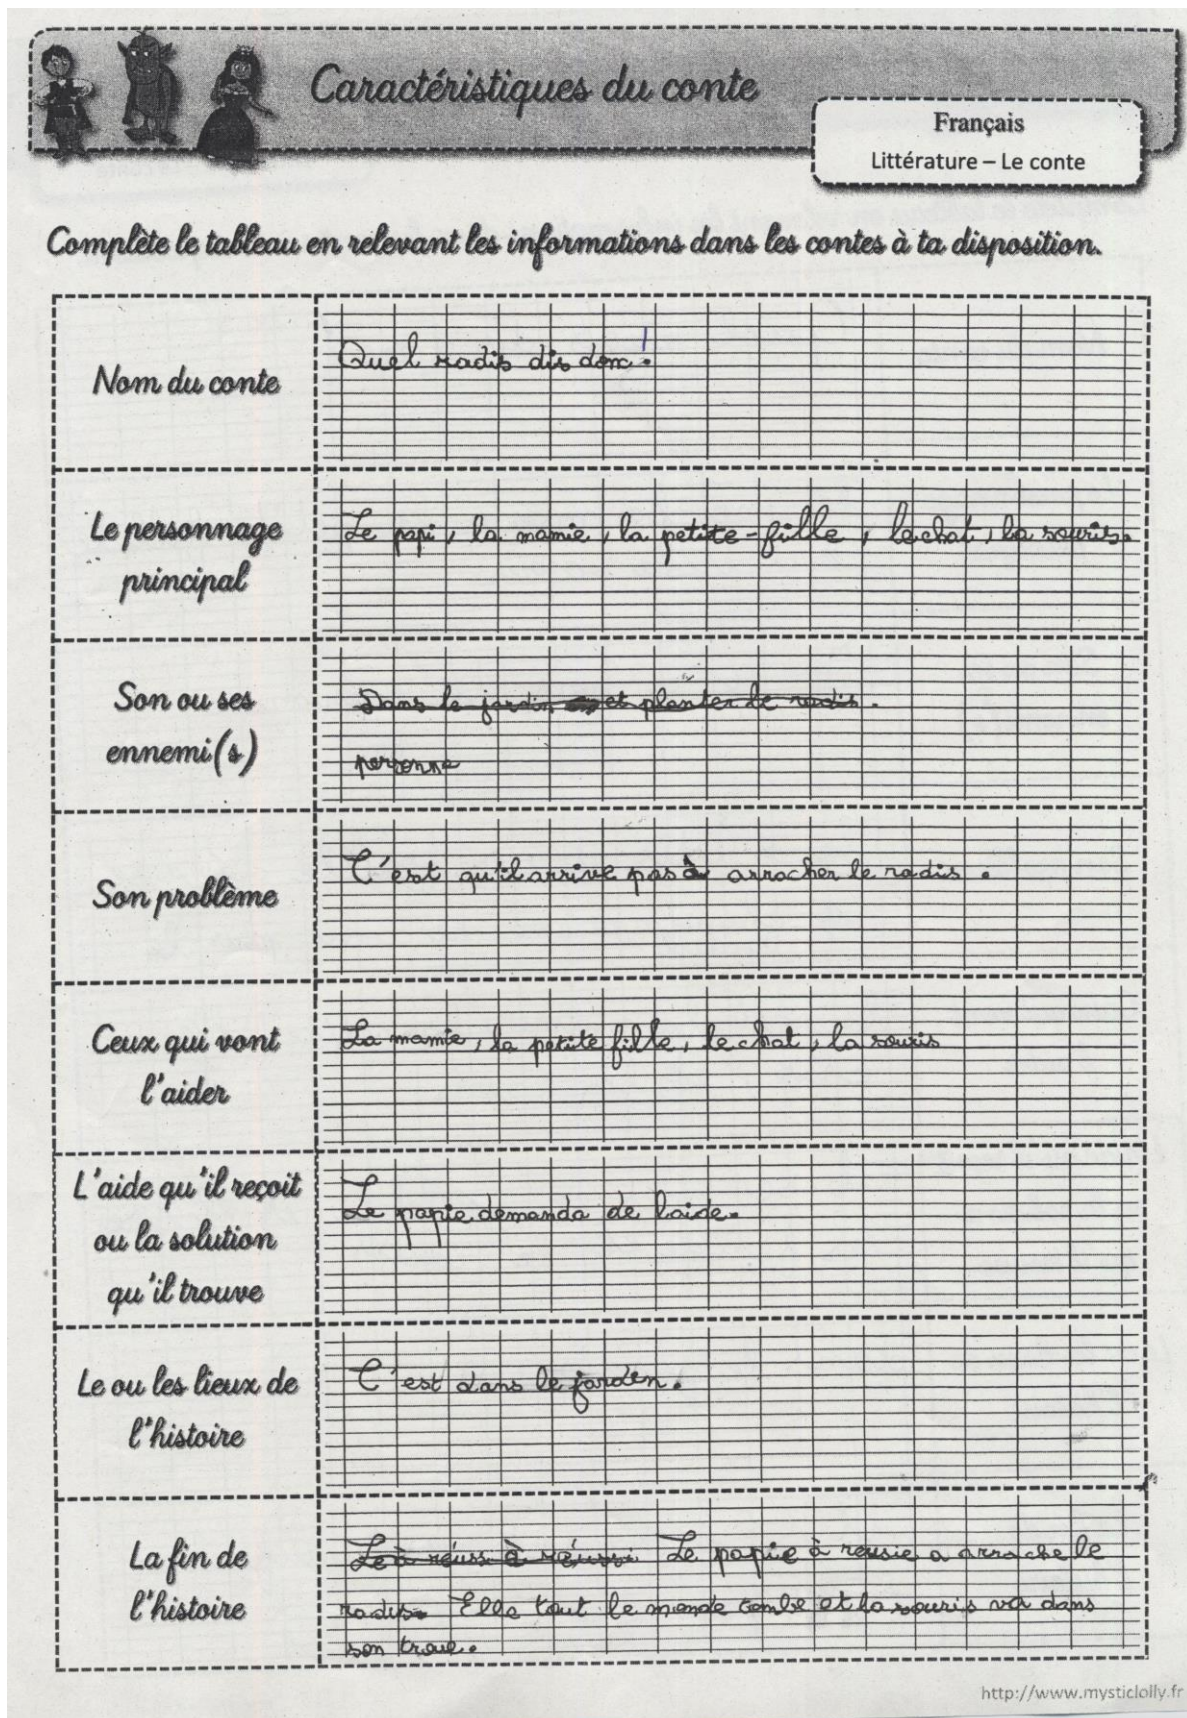 Caractéristiques du conte
Français
Littérature – Le conte
Complète le tableau en relevant les informations dans les contes à ta disposition.
Nom du conte
Quel radis dis donc !
Le personnage
principal
Le papi, la mamie, la petite-fille, le chat, la souris.
Son ou ses
ennemi(s)
Dans le jardin et planter le radis.
personne
Son problème
C'est qu'il arrive pas à arracher le radis.
Ceux qui vont
l'aider
La mamie, la petite fille, le chat, la souris
L'aide qu'il reçoit
ou la solution
qu'il trouve
Le papie demanda de laide.
Le ou les lieux de
l'histoire
C'est dans le jarden.
La fin de
l'histoire
Le à réussi à réussi Le papie à reusie a arrache le
radis. Elle tout le monde tombe et la souris va dans
son troue.
http://www.mysticlolly.fr